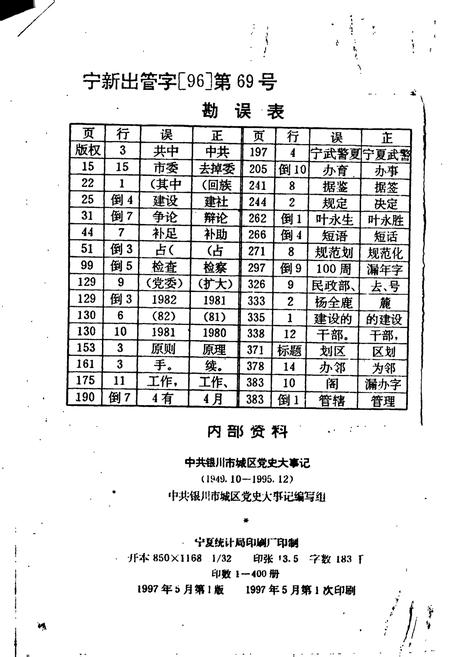 宁新出管字[96]第69号
勘误表
页 行 误 正 页 行 误 正
版权 3 共中 中共 197 4 宁武警夏 宁夏武警
15 15 市委 去掉委 205 倒10 办育 办事
22 1 (其中 (回族 241 8 据鉴 据签
25 倒4 建设 建社 244 2 规定 决定
31 倒7 争论 辩论 262 倒1 叶永生 叶永胜
44 7 补足 补助 266 倒4 短语 短话
51 倒3 占( (占 271 8 规范划 规范化
99 倒5 检查 检察 297 倒9 100周 漏年字
129 9 (党委) (扩大) 326 9 民政部、 去、号
129 倒3 1982 1981 333 2 杨全鹿 麓
130 6 (82) (81) 335 1 建设的 的建设
130 10 1981 1980 338 12 干部。 干部,
153 3 原则 原理 371 标题 划区 区划
161 3 手。 续。 378 14 办邻 为邻
175 11 工作, 工作、 383 10 阁 漏办字
190 倒7 4有 4月 383 倒1 管辖 管理
内部资料
中共银川市城区党史大事记
(1949.10—1995.12)
中共银川市城区党史大事记编写组
*
宁夏统计局印刷厂印制
开本850×1168 1/32 印张13.5 字数183千
印数1—400册
1997年5月第1版 1997年5月第1次印刷